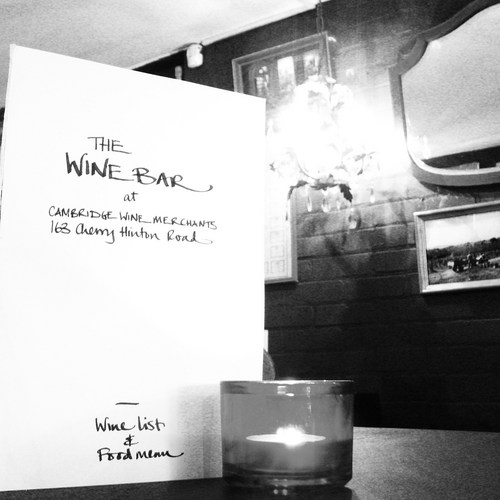 THE
WINE BAR
at
CAMBRIDGE WINE MERCHANTS
163 Cherry Hinton Road
Wine list
&
Food menu